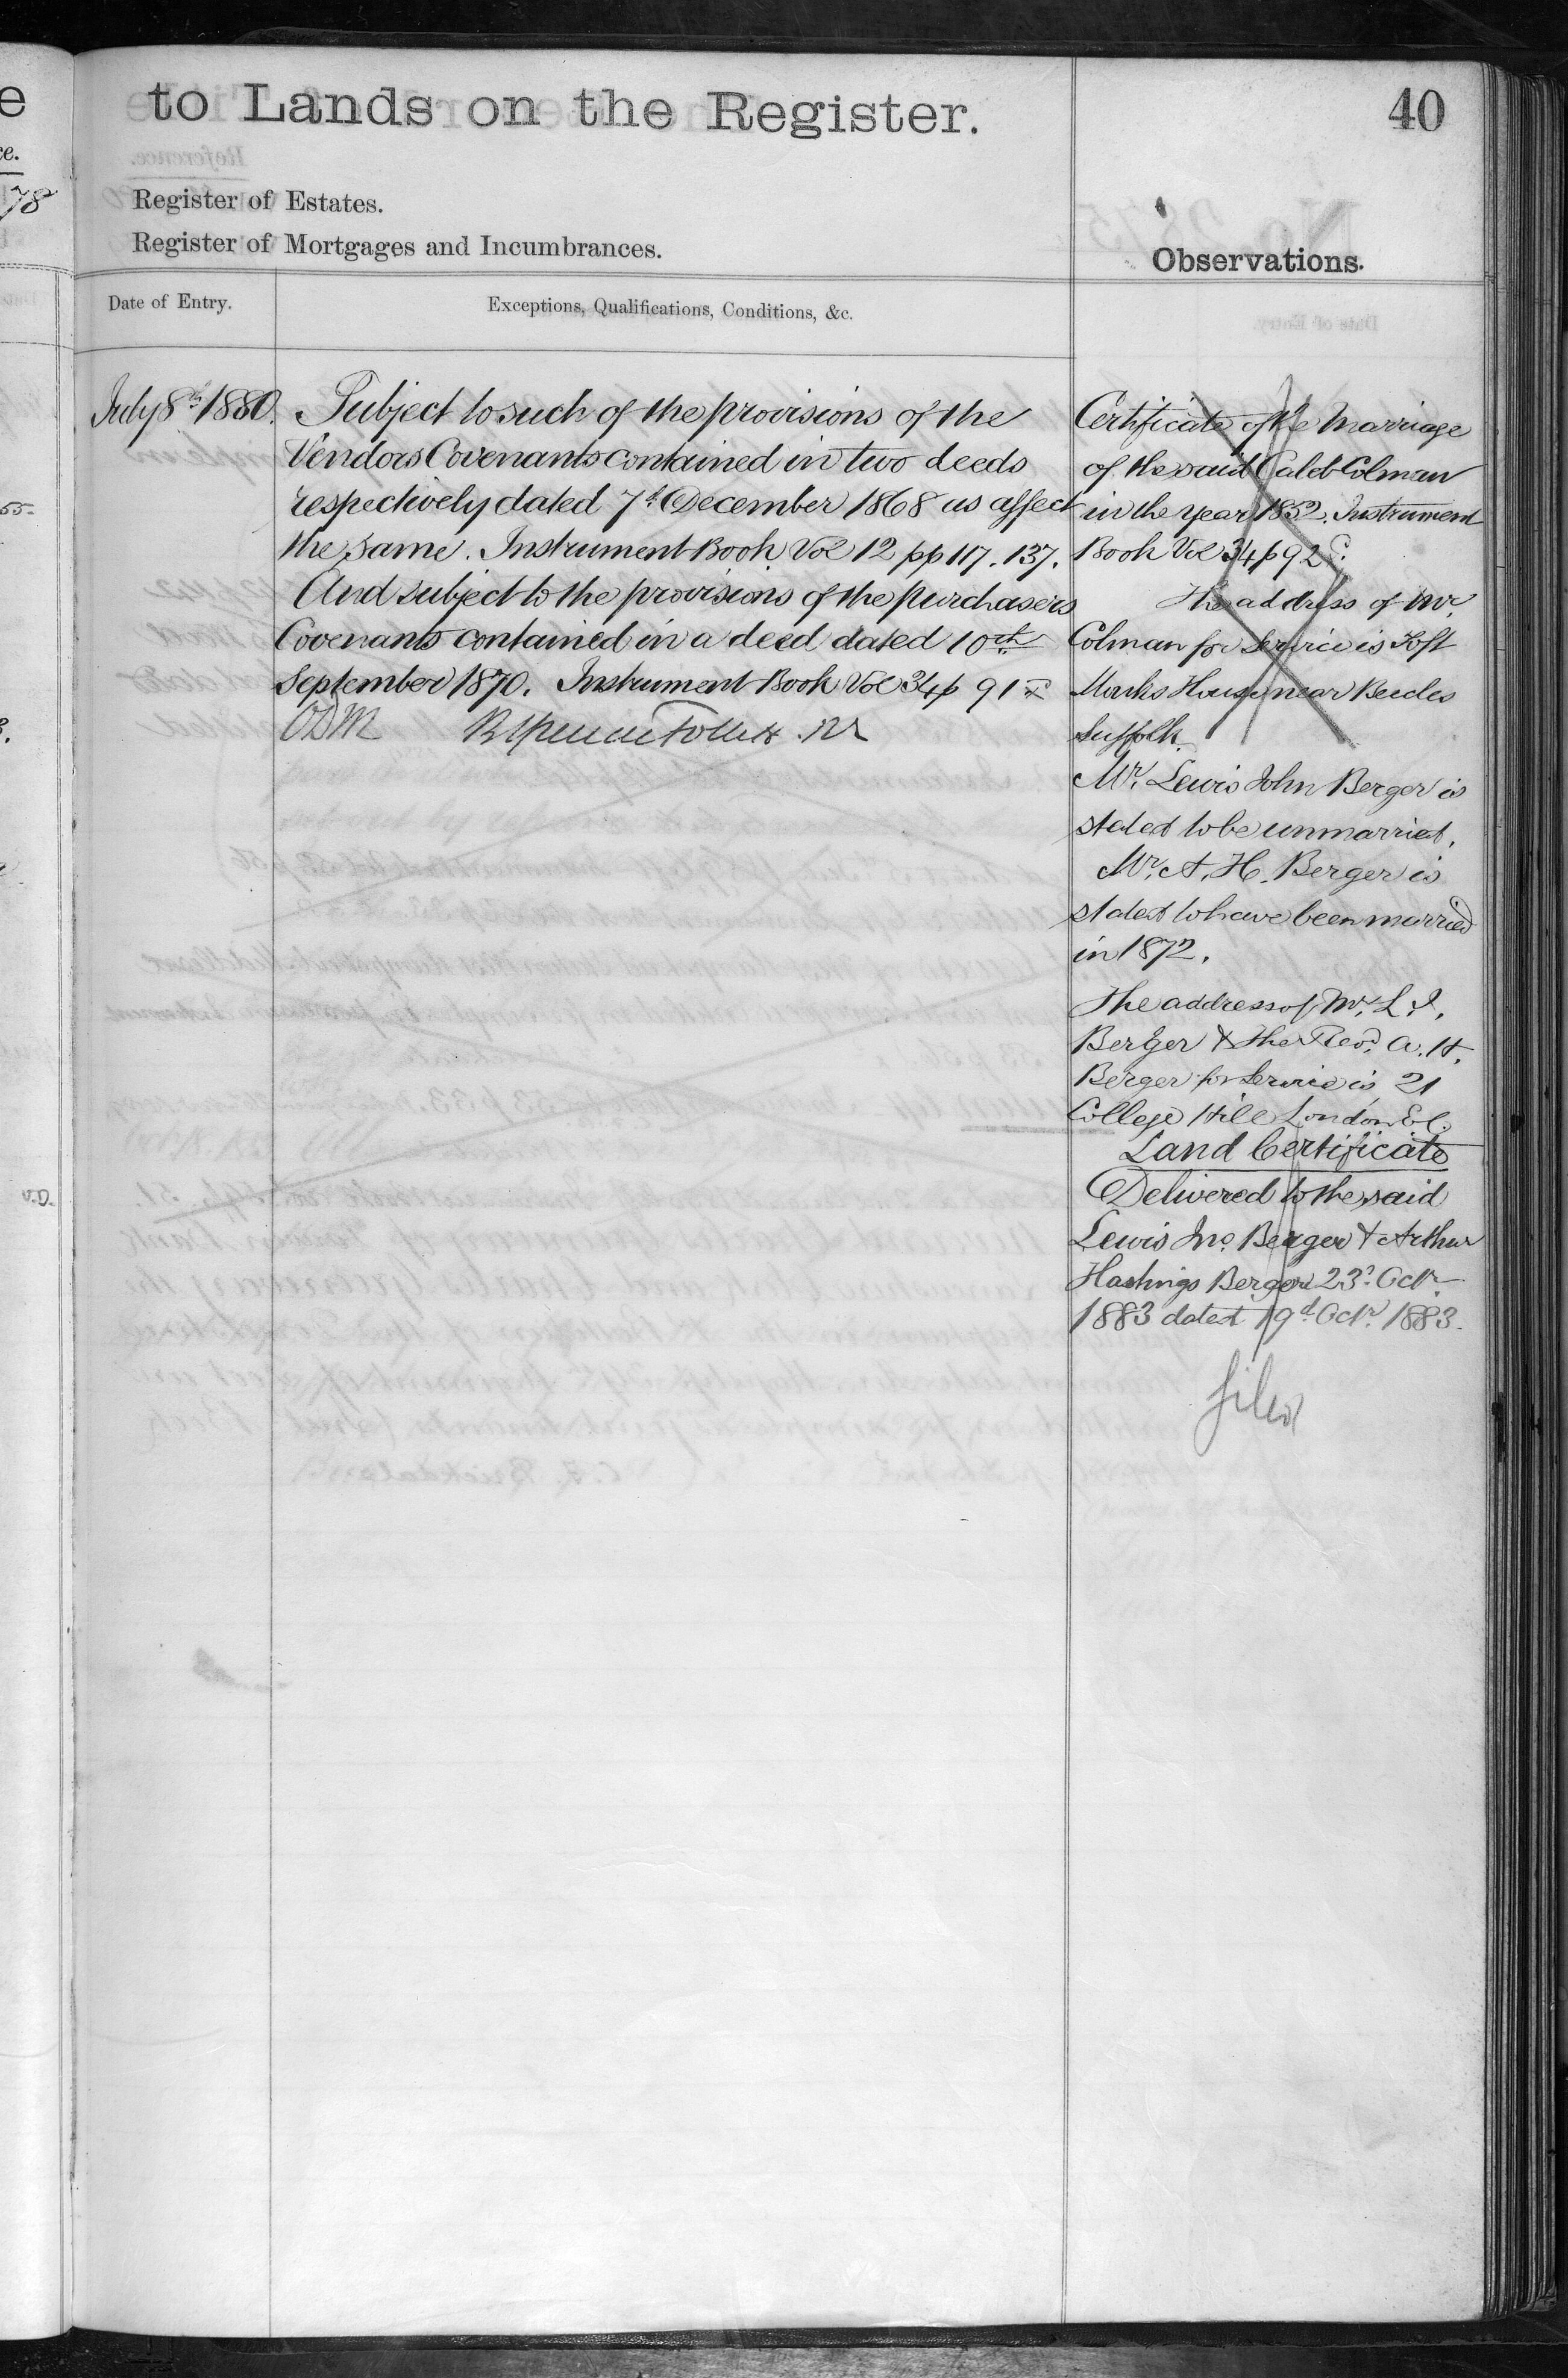 to Lands on the Register.
40
Register of Estates.
Register of Mortgages and Incumbrances.
Observations.
Date of Entry.
Exceptions, Qualifications, Conditions, &c.
July 8th 1880.
Subject to such of the provisions of the
Vendors Covenants contained in two deeds
respectively dated 7th December 1868 as affect
the same. Instrument Book Vol 12 pp 117. 137.
And subject to the provisions of the purchasers
Covenants contained in a deed dated 10th
September 1870. Instrument Book Vol 34 p 91
Certificate of the Marriage
of the said Caleb Colman
in the year 1852. Instrument
Book Vol 34 p 92
The address of Mr.
Colman for Service is Toft
Monks House near Beccles
Suffolk.
Mr. Lewis John Berger is
stated to be unmarried.
Mr. A. H. Berger is
stated to have been married
in 1872.
The address of Mr. L. J.
Berger & the Revd. A. H.
Berger for Service is 21
College Hill London E.C.
Land Certificate
Delivered to the said
Lewis Jno. Berger & Arthur
Hastings Berger 23d. Octr.
1883 dated 19th Octr. 1883.
filed